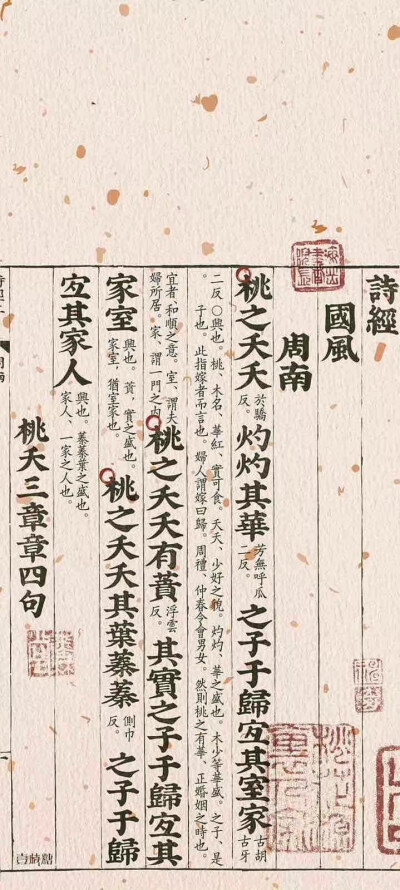 詩經
國風
周南
桃之夭夭於驕反。灼灼其華芳無呼瓜二反。之子于歸宐其室家古胡古牙
二反○興也。桃、木名、華紅、實可食。夭夭、少好之貌。灼灼、華之盛也。木少等華盛。之子、是
子也。此指嫁者而言也。婦人謂嫁曰歸。周禮、仲春令會男女。然則桃之有華、正婚姻之時也。
宜者、和順之意。室、謂夫婦所居。家、謂一門之內。桃之夭夭有蕡浮雲反。其實之子于歸宐其
家室興也。蕡、實之盛也。家室、猶室家也。桃之夭夭其葉蓁蓁側巾反。之子于歸
宐其家人興也。蓁蓁葉之盛也。家人、一家之人也。
桃夭三章章四句
白崎糖